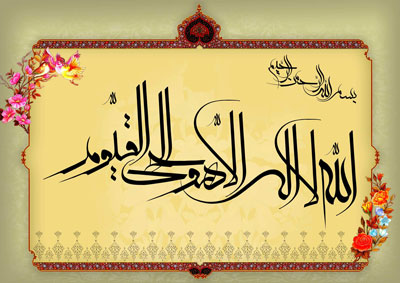 بسم الله الرحمن الرحیم
الله لا اله الا هو الحی القیوم